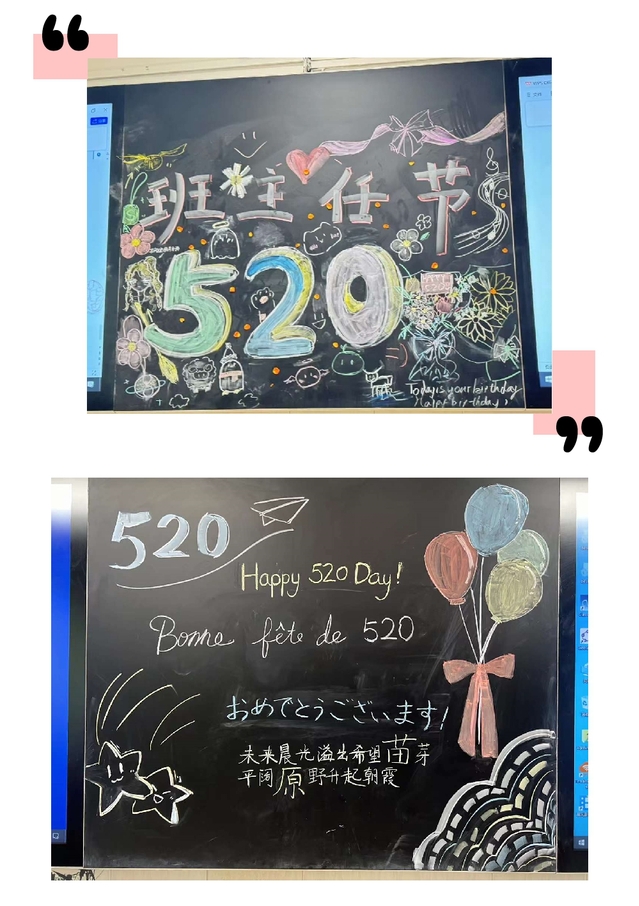 班主任节
520
Today is your birthday
Happy birthday!
520
Happy 520 Day!
Bonne fête de 520
おめでとうございます!
未来晨光溢出希望苗芽
平阔原野升起朝霞